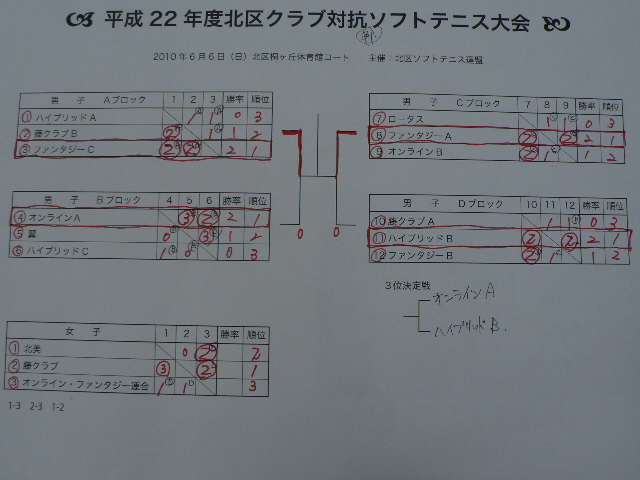 平成22年度北区クラブ対抗ソフトテニス大会
2010年6月6日（日）北区桐ヶ丘体育館コート 主催：北区ソフトテニス連盟
男 子 Aブロック 1 2 3 勝率 順位
① ハイブリッドA 1 1 0 3
② 藤クラブB ② 1 1 2
③ ファンタジーC ② ② 2 1
男 子 Bブロック 4 5 6 勝率 順位
④ オンラインA ③ ② 2 1
⑤ 翼 0 ③ 1 2
⑥ ハイブリッドC 1 0 0 3
女 子 1 2 3 勝率 順位
① 北美 0 ② 2
② 藤クラブ ③ ② 1
③ オンライン・ファンタジー連合 1 1 3
1-3 2-3 1-2
男 子 Cブロック 7 8 9 勝率 順位
⑦ ロータス 1 1 0 3
⑧ ファンタジーA ② ② 2 1
⑨ オンラインB ② 1 1 2
男 子 Dブロック 10 11 12 勝率 順位
⑩ 藤クラブA 1 1 0 3
⑪ ハイブリッドB ② ② 2 1
⑫ ファンタジーB ② 1 1 2
0 0
3位決定戦
オンラインA
ハイブリッドB.